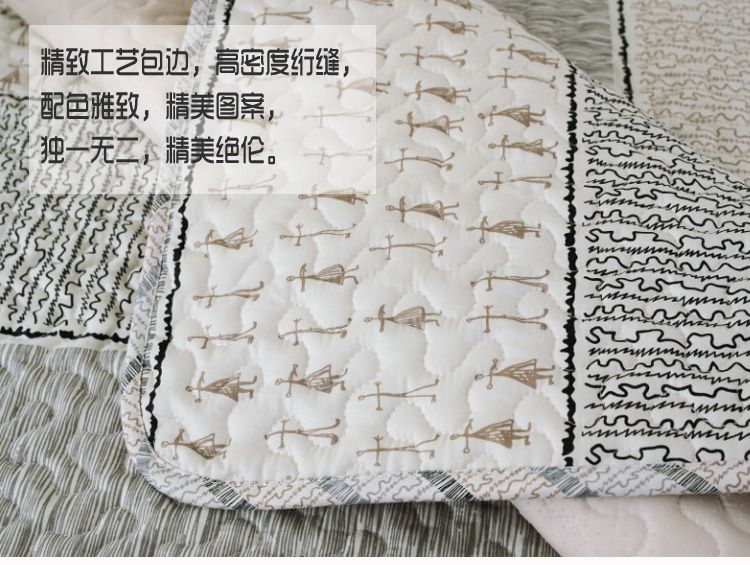 精致工艺包边，高密度绗缝，
配色雅致，精美图案，
独一无二，精美绝伦。